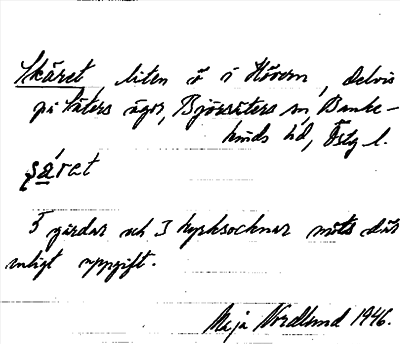 Skäret, liten ö i Hövern, delvis
på Säters ägor, Björsäters sn, Banke-
kinds hd, Östg l.
ʂä́ret
5 gårdar och 3 kyrksocknar möts där
enligt uppgift.
Maja Nordlund 1946.